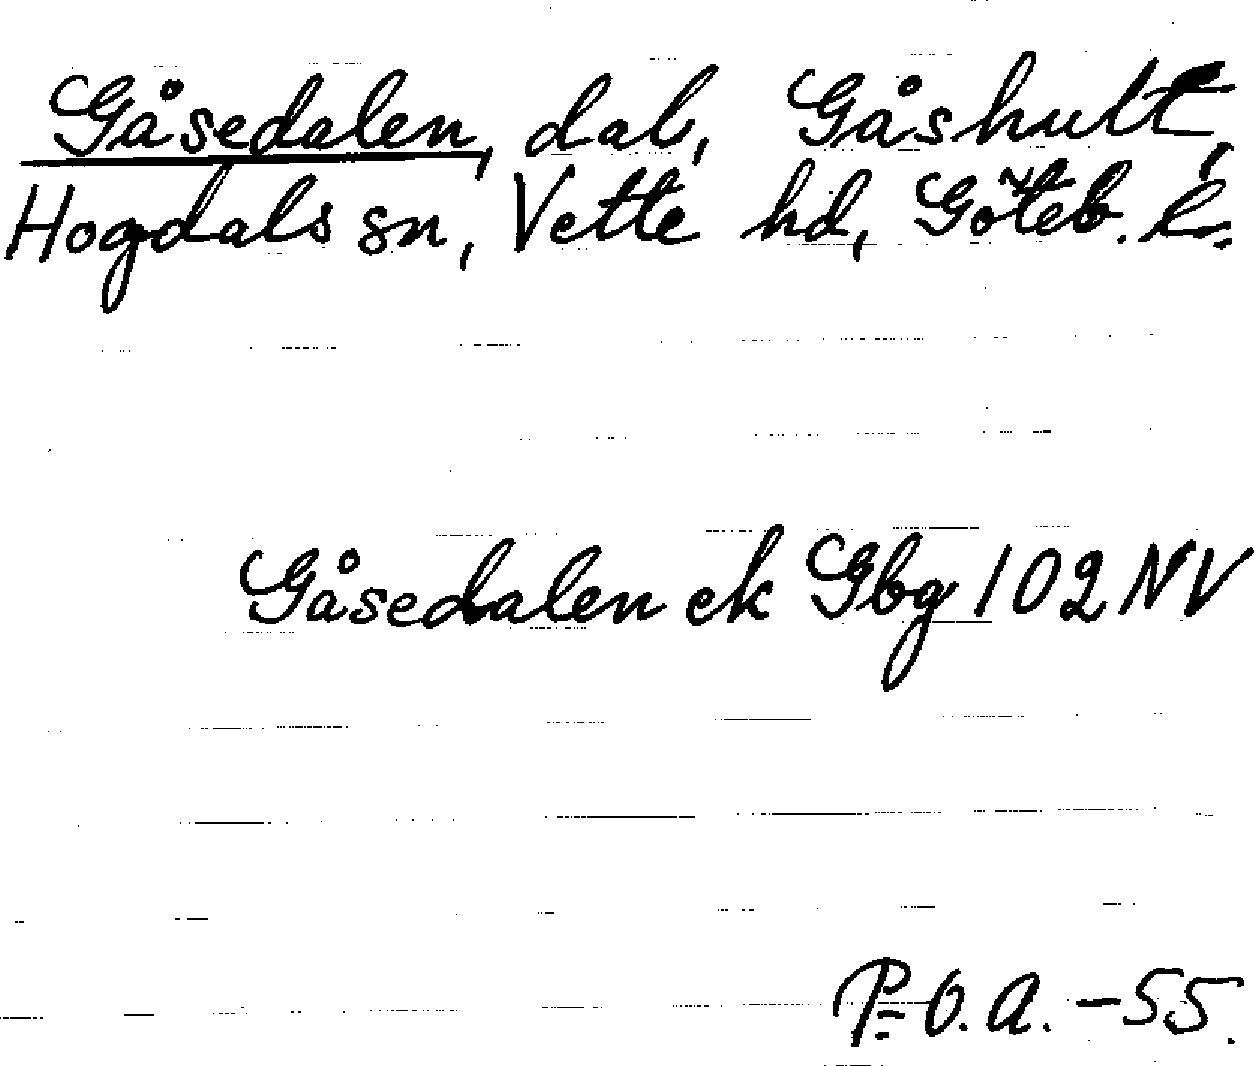 Gåsedalen, dal, Gåshult,
Hogdals sn, Vette hd, Göteb. l:
Gåsedalen ek Gbg 102 NV
P:O.A. -55.